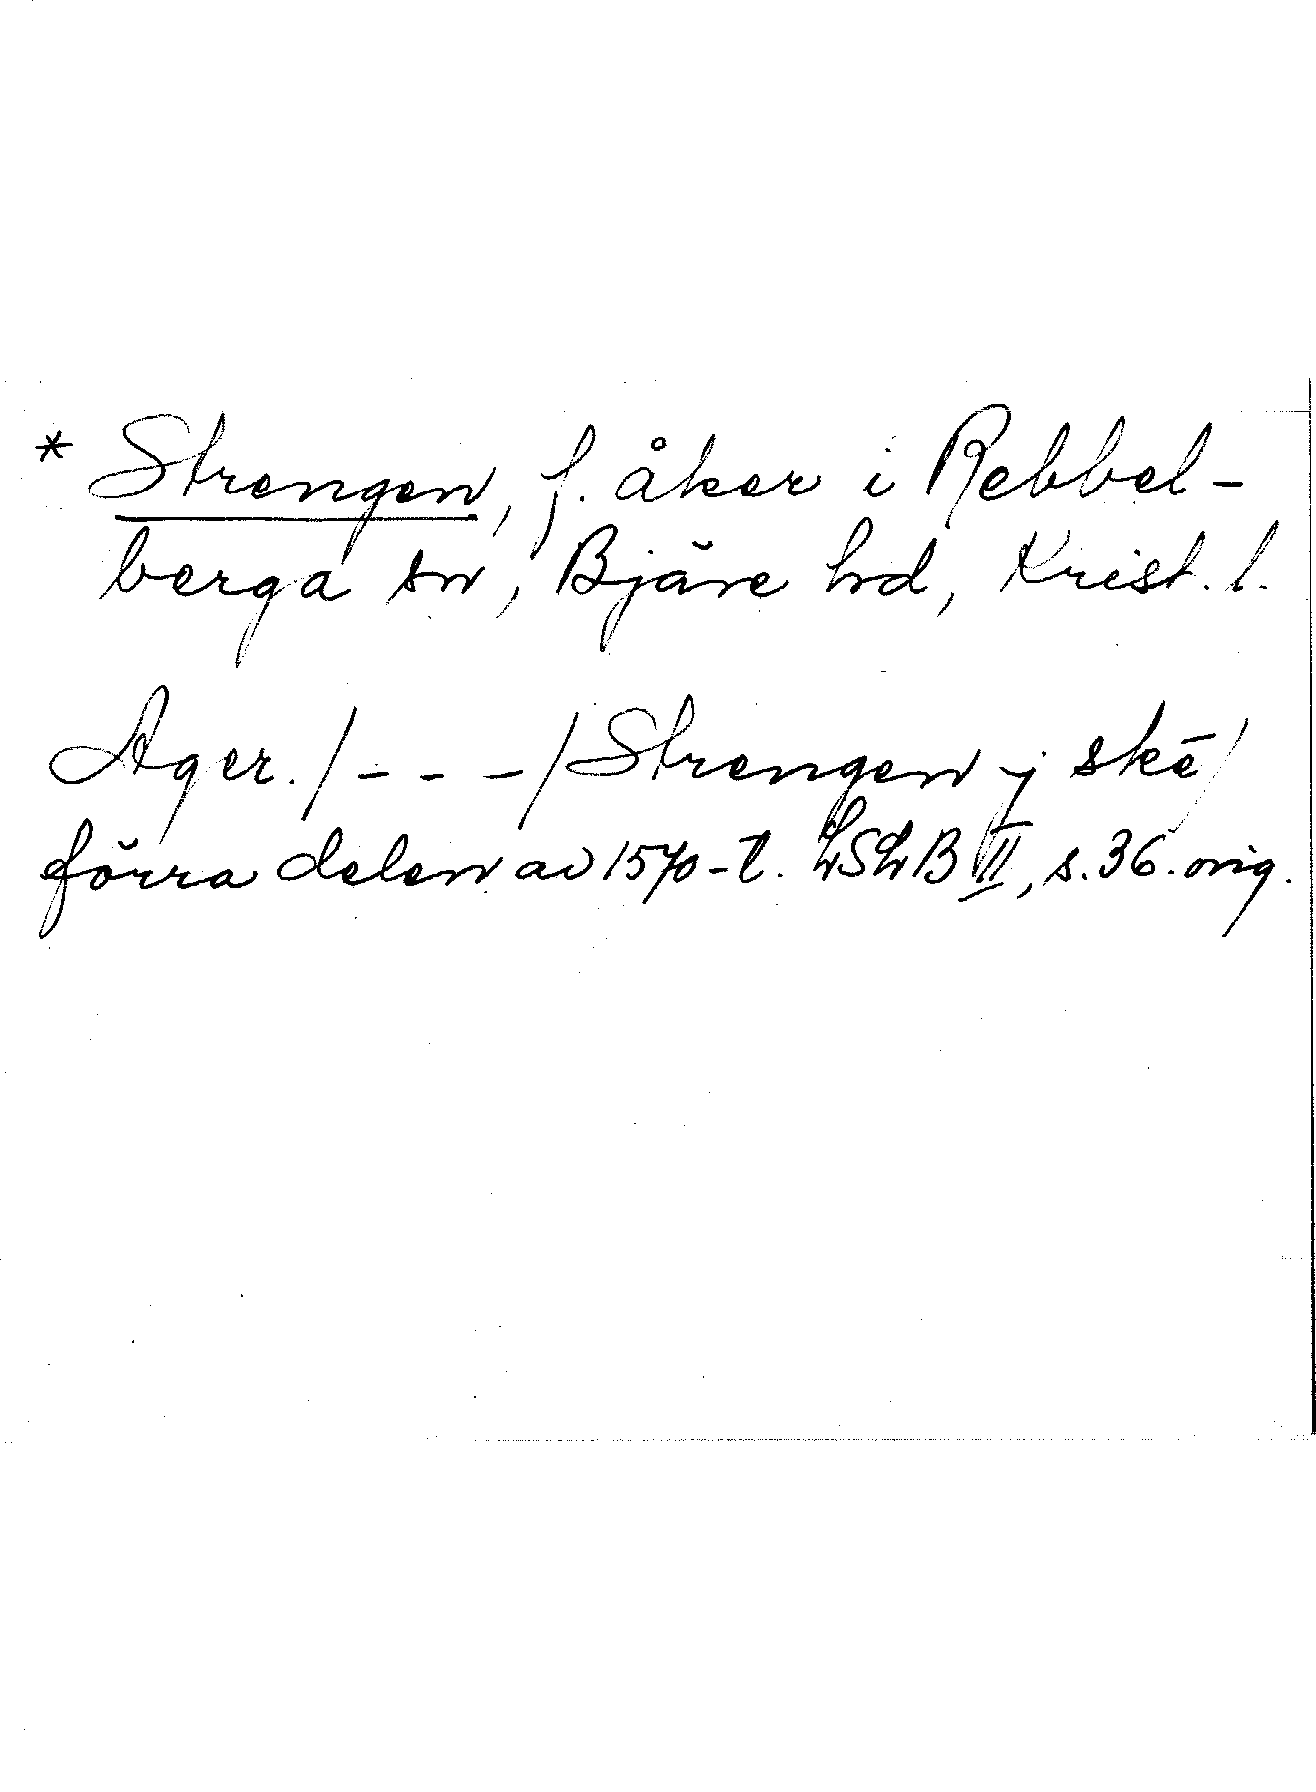 * Strengen, f. åker i Rebbel-
berga sn, Bjäre hd, Krist. l.
Ager. /- - -/ Strengen j skē/
förra delen av 1570-t. LSLB II, s. 36. orig.